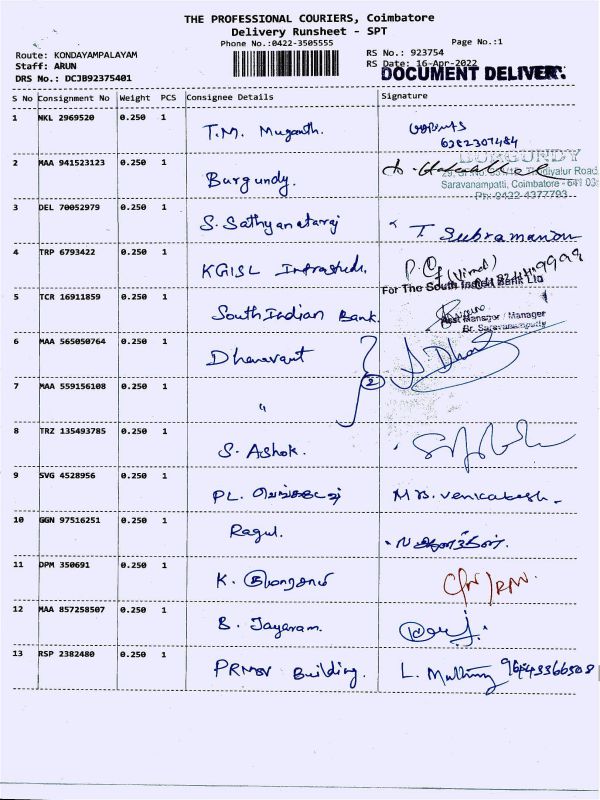 THE PROFESSIONAL COURIERS, Coimbatore
Delivery Runsheet - SPT
Phone No.:0422-3505555
Page No.:1
Route: KONDAYAMPALAYAM
RS No.: 923754
Staff: ARUN
RS Date: 16-Apr-2022
DRS No.: DCJB92375401
DOCUMENT DELIVER
S No Consignment No Weight PCS Consignee Details Signature
1 NKL 2969520 0.250 1 T.M.
6382307484
2 MAA 941523123 0.250 1 Burgundy.
BURGUNDY
Saravanampatti, Coimbatore - 641 03
Ph: 0422-4377793
3 DEL 70052979 0.250 1 S. T. Subramanian
4 TRP 6793422 0.250 1 KGISL
For The South Indian Bank Ltd
5 TCR 16911859 0.250 1 South Indian Bank.
Asst Manager / Manager
Br. Saravanampatty
6 MAA 565050764 0.250 1 Dhanavant
7 MAA 559156108 0.250 1 " 2
8 TRZ 135493785 0.250 1 S. Ashok.
9 SVG 4528956 0.250 1 PL.
10 GGN 97516251 0.250 1 Ragul.
11 DPM 350691 0.250 1 K.
12 MAA 857258507 0.250 1 B. Jayaram.
13 RSP 2382480 0.250 1 Building. L.